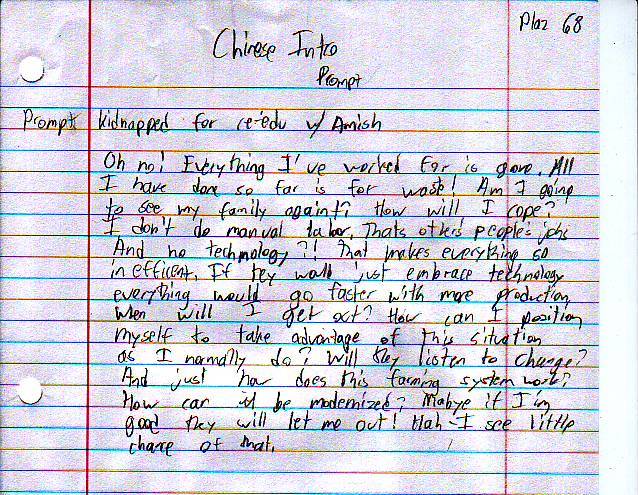 Plaz 68
Chinese Intro
Prompt
Prompt kidnapped for re-edu w/ Amish
Oh no! Everything I've worked for is gone. All
I have done so far is for waste! Am I going
to see my family again!? How will I cope?
I don't do manual labor. Thats others people's jobs
And no technology?! That makes everything so
inefficent. If they would just embrace technology
everything would go faster with more production,
When will I get out? How can I position
myself to take advantage of this situation
as I normally do? Will they listen to change?
And just how does this farming system work?
How can it be modernized? Mabye if I'm
good they will let me out! Hah - I see little
chance of that.